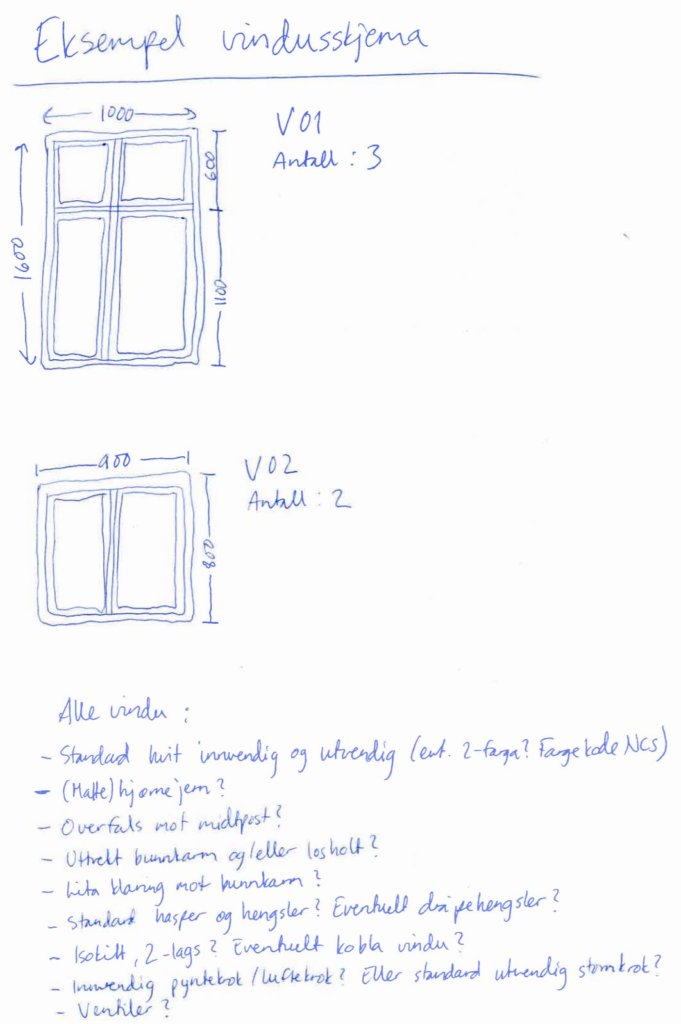 Eksempel vindusskjema
1000
V01
Antall : 3
600
1600
1100
900
V02
Antall : 2
800
Alle vindu :
- Standard hvit innvendig og utvendig (evt. 2-farga? Fargekode NCS)
- (Matte) hjørnejern?
- Overfals mot midtpost?
- Uttrekt bunnkarm og/eller losholt?
- Lita klaring mot bunnkarm?
- Standard hasper og hengsler? Eventuelt dråpehengsler?
- Isokitt, 2-lags? Eventuelt kobla vindu?
- Innvendig pyntekrok/luftekrok? Eller standard utvendig stormkrok?
- Ventiler?